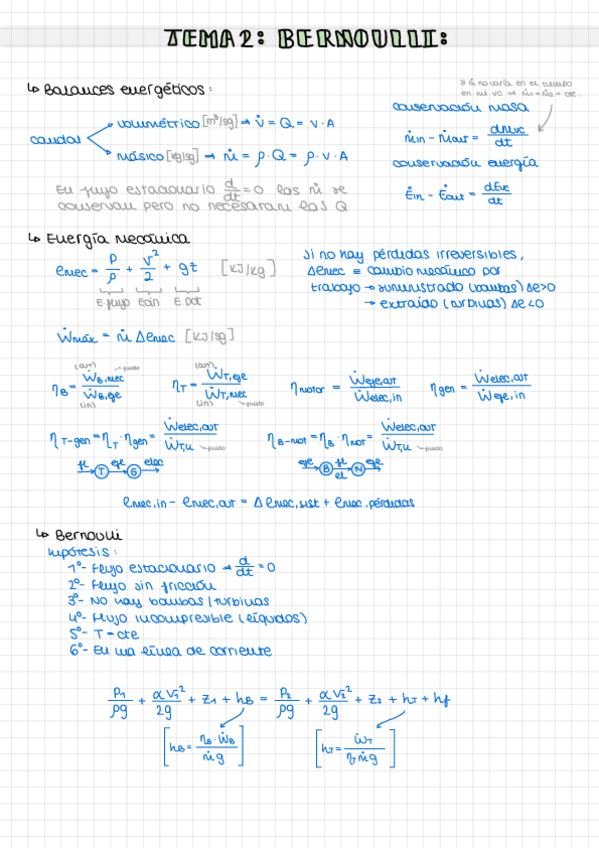 TEMA 2: BERNOULLI:
↳ Balances energéticos:
caudal
volumétrico [m³/sg] → V̇ = Q = v·A
másico [kg/sg] → ṁ = ρ·Q = ρ·v·A
En flujo estacionario d/dt = 0 las ṁ se
conservan pero no necesariam las Q
si ṁ no varía en el tiempo
en mi VC → ṁ1 = ṁ2 = cte.
conservación masa
ṁin − ṁout = dmvc/dt
conservación energía
Ėin − Ėout = dEvc/dt
↳ Energía mecánica
emec = P/ρ + v²/2 + gz [kJ/kg]
E.flujo Ecin E.pot
Si no hay pérdidas irreversibles,
Δemec ≡ cambio mecánico por
trabajo → suministrado (bombas) Δe>0
→ extraído (turbinas) Δe<0
Ẇmáx = ṁ Δemec [kJ/sg]
ηB = ẆB,mec/ẆB,eje (out) (in) fluido
ηT = ẆT,eje/ẆT,mec (out) (in) fluido
ηmotor = Ẇeje,out/Ẇelec,in
ηgen = Ẇelec,out/Ẇeje,in
ηT-gen = ηT·ηgen = Ẇelec,out/ẆT,u → fluido
ηB-mot = ηB·ηmot = Ẇelec,out/ẆT,u → fluido
fl T eje G elec
eje B fl el M eje
emec,in − emec,out = Δemec,sist + emec,pérdidas
↳ Bernoulli
Hipótesis:
1º- Flujo estacionario → d/dt = 0
2º- Flujo sin fricción
3º- No hay bombas/turbinas
4º- Flujo incompresible (líquidos)
5º- T = cte
6º- En una línea de corriente
P1/ρg + αv1²/2g + z1 + hB = P2/ρg + αv2²/2g + z2 + hT + hf
[hB = ηB·ẆB/ṁg]
[hT = ẆT/ηTṁg]